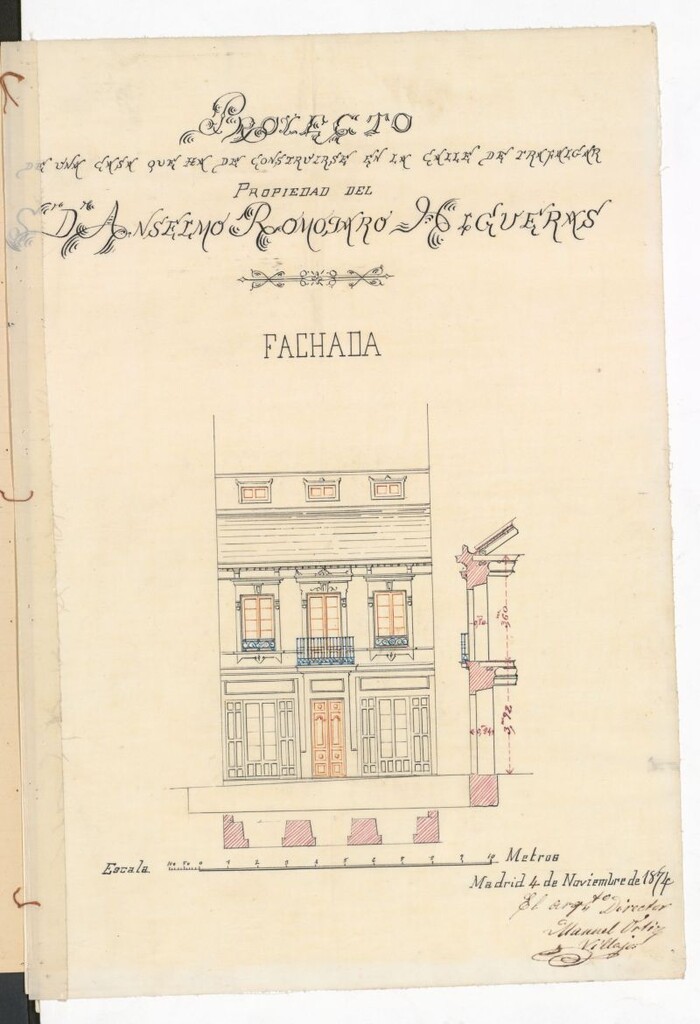 PROYECTO
DE UNA CASA QUE HA DE CONSTRUIRSE EN LA CALLE DE TRAFALGAR
PROPIEDAD DEL
Sr. Dn. ANSELMO ROMOTARO HIGUERAS
FACHADA
3,60
3,92
Escala
0 1 2 3 4 5 6 7 8 9 10 Metros
Madrid 4 de Noviembre de 1874
El arqto Director
Manuel Ortiz
y Villajos